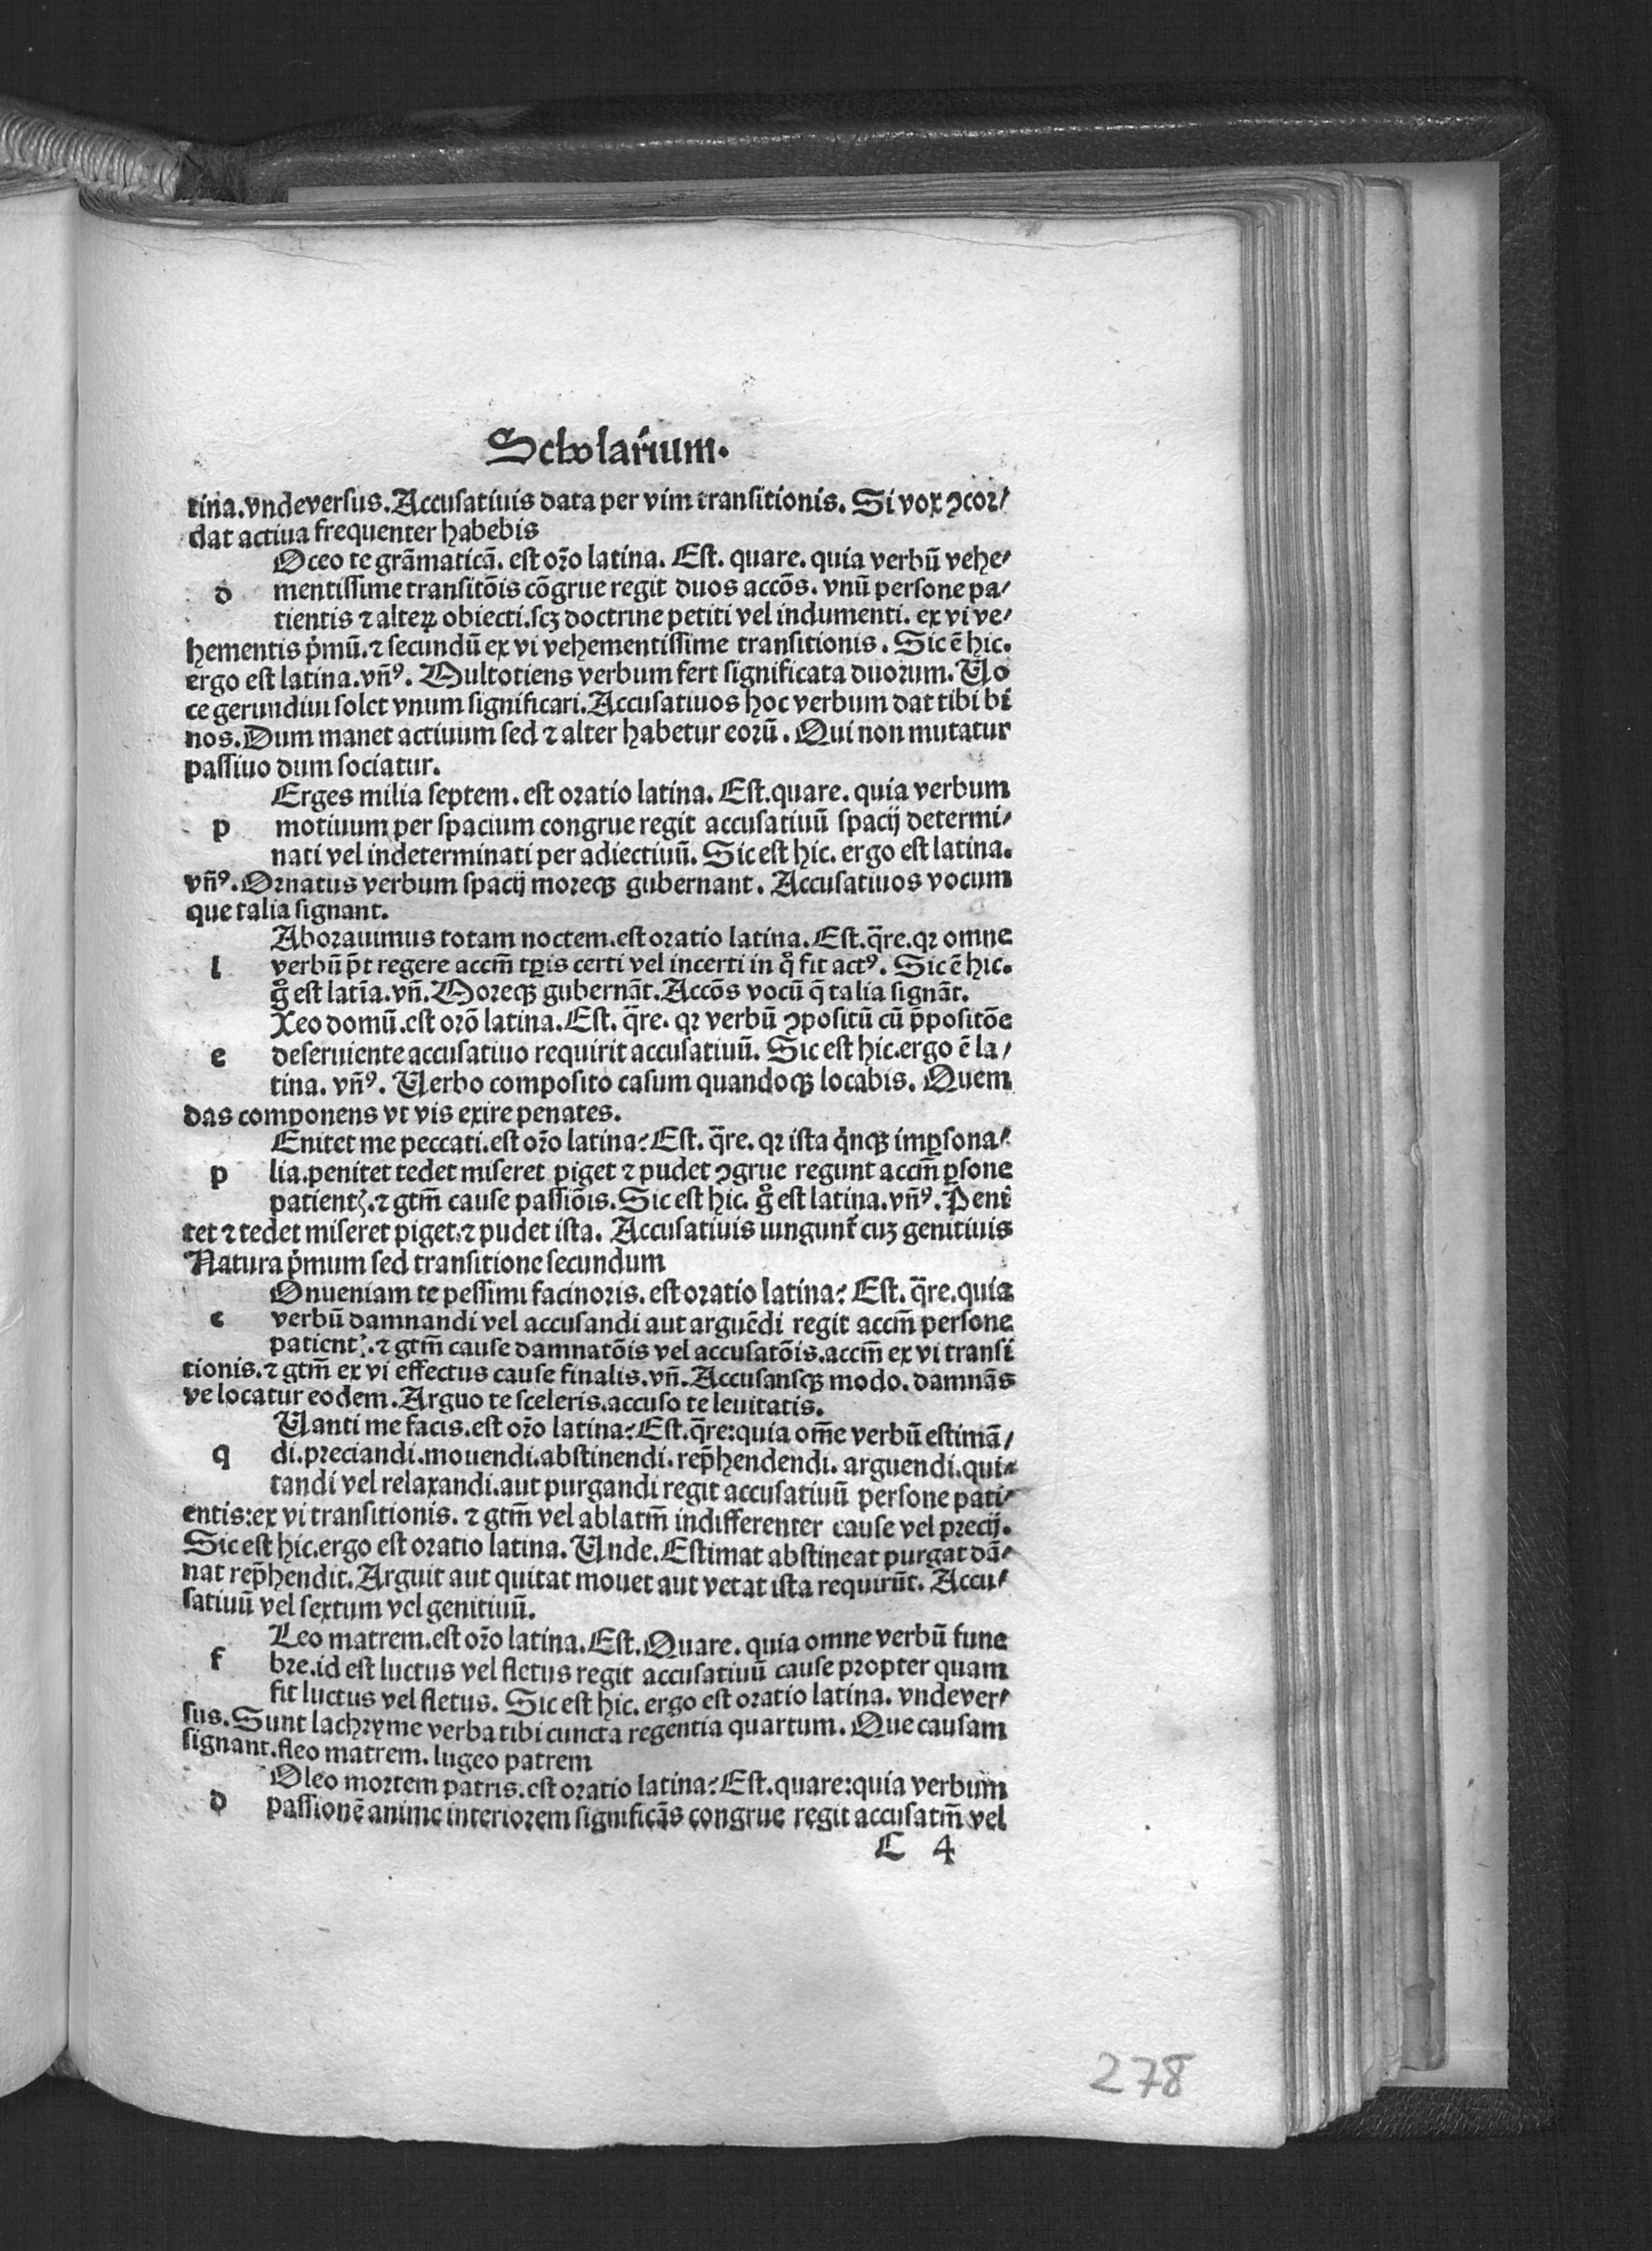 Scholarium.
tina.vndeversus.Accusatiuis data per vim transitionis. Si vox ꝯcor/
dat actiua frequenter habebis
Oceo te grãmaticã. est oȓo latina. Est. quare. quia verbũ vehe/
d mentissime transitõis cõgrue regit duos accõs. vnũ persone pa/
tientis ⁊ alteꝝ obiecti.scꝫ doctrine petiti vel indumenti. ex vi ve/
hementis pͥmũ.⁊ secundũ ex vi vehementissime transitionis. Sic ẽ hic.
ergo est latina.vñꝰ. Multotiens verbum fert significata duorum. Uo
ce gerundiui solet vnum significari.Accusatiuos hoc verbum dat tibi bi
nos.Dum manet actiuum sed ⁊ alter habetur eorũ. Qui non mutatur
passiuo dum sociatur.
Erges milia septem. est oratio latina. Est.quare. quia verbum
p motiuum per spacium congrue regit accusatiuũ spacij determi/
nati vel indeterminati per adiectiuũ. Sic est hic. ergo est latina.
vñꝰ. Ornatus verbum spacij moreqꝫ gubernant. Accusatiuos vocum
que talia signant.
Aborauimus totam noctem.est oratio latina.Est.q̃re.qꝛ omne
l verbũ p̃t regere accm̃ tꝑis certi vel incerti in qͦ fit actꝰ. Sic ẽ hic.
gͦ est latĩa.vñ.Moreqꝫ gubernãt.Accõs vocũ q̃ talia signãt.
Xeo domũ.est orõ latina.Est. q̃re. qꝛ verbũ ꝯpositũ cũ p̃positõe
e deseruiente accusatiuo requirit accusatiuũ. Sic est hic.ergo ẽ la/
tina. vñꝰ. Uerbo composito casum quandoqꝫ locabis. Quem
das componens vt vis exire penates.
Enitet me peccati.est oȓo latina? Est. q̃re. qꝛ ista qͥnqꝫ imꝑsona/
p lia.penitet tedet miseret piget ⁊ pudet ꝯgrue regunt accm̃ ꝑsone
patientꝭ.⁊ gtm̃ cause passiõis. Sic est hic. gͦ est latina.vñꝰ. Peni
tet ⁊ tedet miseret piget.⁊ pudet ista. Accusatiuis iungunt᷑ cuꝫ genitiuis
Natura pͥmum sed transitione secundum
Onueniam te pessimi facinoris. est oratio latina? Est. q̃re.quia
c verbũ damnandi vel accusandi aut arguẽdi regit accm̃ persone
patientꝭ.⁊ gtm̃ cause damnatõis vel accusatõis.accm̃ ex vi transi
tionis.⁊ gtm̃ ex vi effectus cause finalis.vñ.Accusansqꝫ modo.damnãs
ve locatur eodem.Arguo te sceleris.accuso te leuitatis.
Uanti me facis.est oȓo latina?Est.q̃re:quia om̃e verbũ estimã/
q di.preciandi.mouendi.abstinendi.rep̃hendendi. arguendi.qui/
tandi vel relaxandi.aut purgandi regit accusatiuũ persone pati/
entis:ex vi transitionis. ⁊ gtm̃ vel ablatm̃ indifferenter cause vel precij.
Sic est hic.ergo est oratio latina. Unde.Estimat abstineat purgat dã/
nat rep̃hendit.Arguit aut quitat mouet aut vetat ista requirũt. Accu/
satiuũ vel sextum vel genitiuũ.
Leo matrem.est oȓo latina.Est.Quare. quia omne verbũ fune
f bre.id est luctus vel fletus regit accusatiuũ cause propter quam
fit luctus vel fletus. Sic est hic. ergo est oratio latina. vndever/
sus.Sunt lachryme verba tibi cuncta regentia quartum. Que causam
signant.fleo matrem. lugeo patrem
Oleo mortem patris.est oratio latina?Est.quare:quia verbum
d passionẽ anime interiorem significãs congrue regit accusatm̃ vel
C 4
278